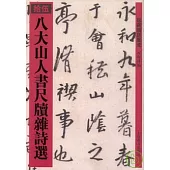 永和九年暮春
會稽山陰
亭脩禊事也
八大山人書尺牘雜詩選